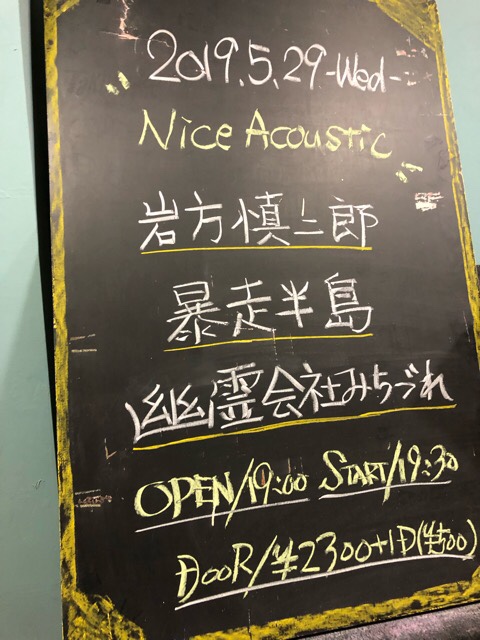 2019.5.29-Wed-
Nice Acoustic
岩方慎二郎
暴走半島
幽霊会社みちづれ
OPEN/19:00 START/19:30
DOOR/¥2300+1D(¥500)